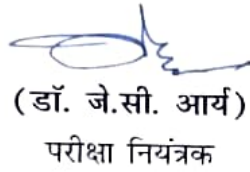 (डॉ. जे.सी. आर्य)
परीक्षा नियंत्रक